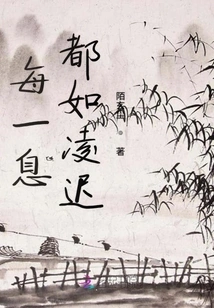 每一息
都如凌迟
著